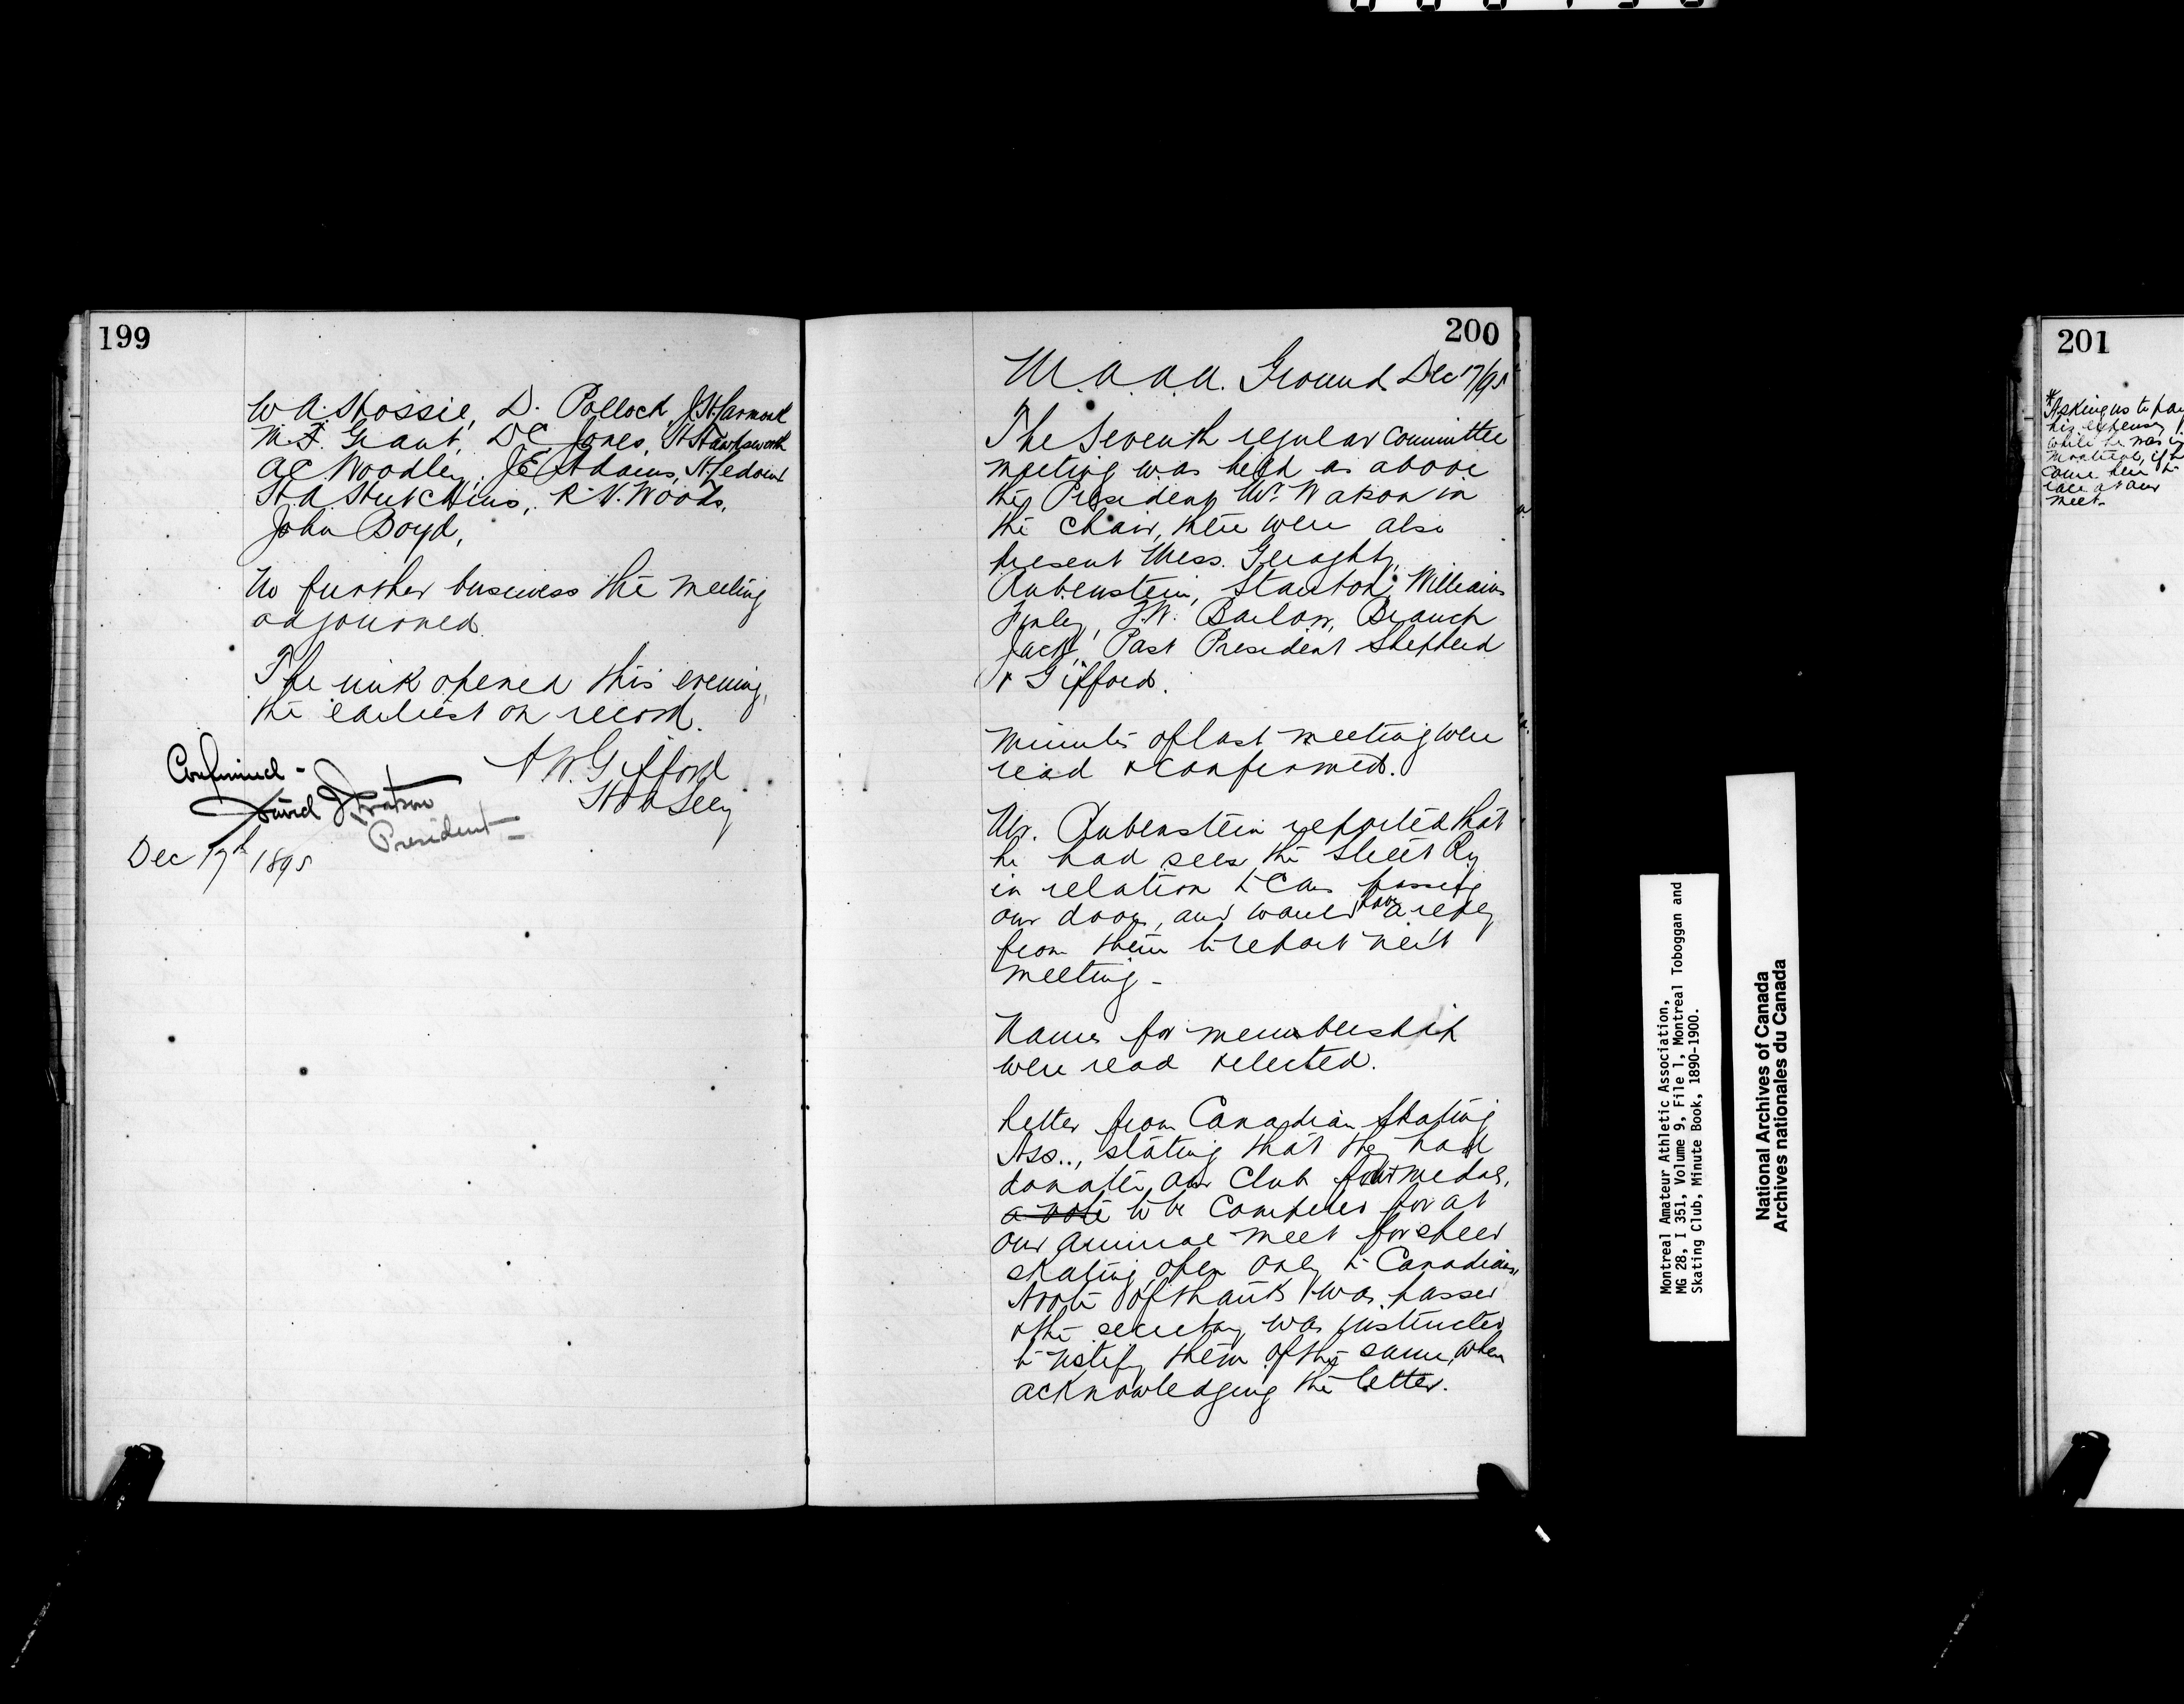 199
W A Hossie, D. Pollock,
M F. Grant, D C Jones, H Hawksworth
A C Woodley, J E Adams,
H. A. Hutchins, R. V. Woods,
John Boyd,
No further business the meeting
adjourned.
The rink opened this evening,
the earliest on record.
Confirmed -
A W. Gifford
David J Watson
Hon Secy
President -
Dec 17th 1895
200
M. A. A. A. Ground Dec 17/95
The Seventh regular committee
meeting was held as above
the President Mr. Watson in
the chair, there were also
present Mess. Geraghty,
Rubenstein, Staunton, Williams
Finley, T.W. Barlow, Branch
Jack, Past President Shepherd
& Gifford.
Minutes of last meeting were
read & confirmed.
Mr. Rubenstein reported that
he had seen the Street Ry
in relation to Cars passing
our door, and would have a reply
from them to report next
meeting -
Names for membership
were read & elected.
Letter from Canadian Skating
Ass.., stating that they had
donated our Club medal,
a vote to be Competed for at
our annual meet for speed
skating open only to Canadians,
A vote of thanks was passed
& the secretary was instructed
to notify them of the same, when
acknowledging the letter.
Montreal Amateur Athletic Association,
MG 28, I 351, Volume 9, File 1, Montreal Toboggan and
Skating Club, Minute Book, 1890-1900.
National Archives of Canada
Archives nationales du Canada
201
* Asking us to pay
his expenses
while he was in
Montreal, if he
came here to
race at our
meet -